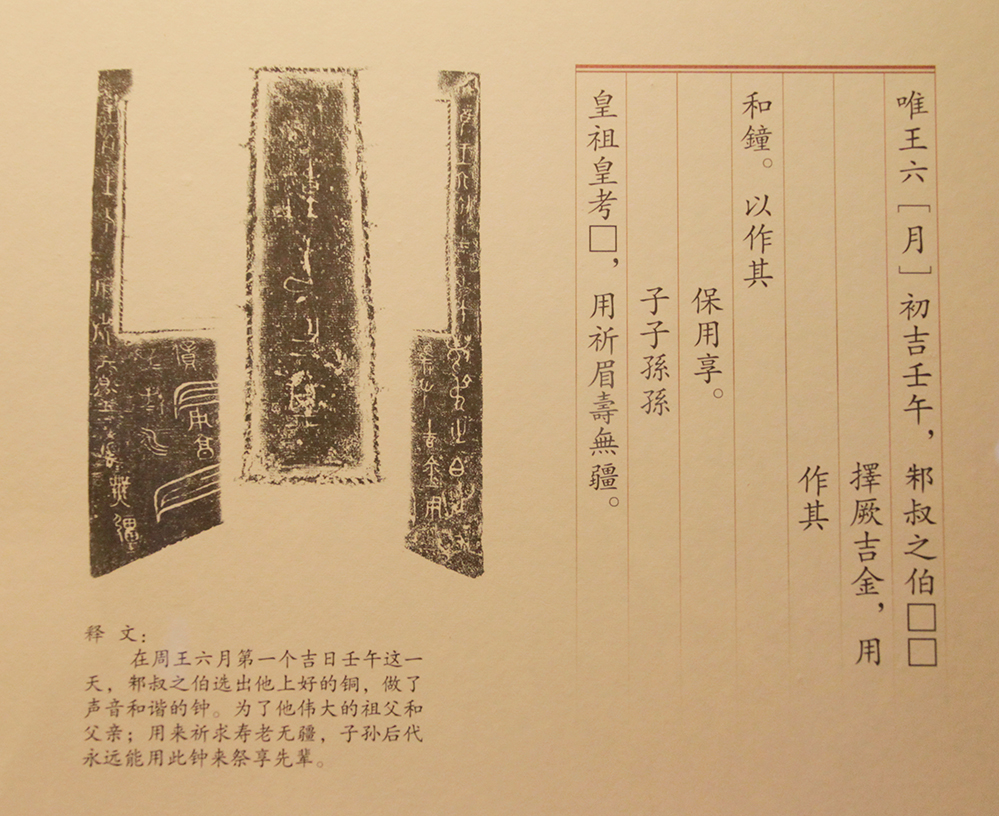 唯王六［月］初吉壬午，邾叔之伯□□
擇厥吉金，用
作其
和鐘。以作其
保用享。
子子孫孫
皇祖皇考□，用祈眉壽無疆。
释 文：
在周王六月第一个吉日壬午这一
天，邾叔之伯选出他上好的铜，做了
声音和谐的钟。为了他伟大的祖父和
父亲；用来祈求寿老无疆，子孙后代
永远能用此钟来祭享先辈。